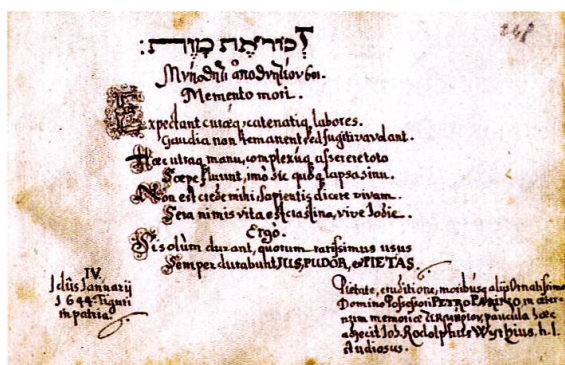 מות:
Memento mori.
Expectant curæq; catenatiq; labores.
Gaudia non remanent sed fugitiva volant.
Hæc utraq manu, complexuq; assere toto
Sæpe fluunt, imò sic quoq; lapsa sinu.
Non est crede mihi Sapientis dicere vivam.
Sera nimis vita est crastina, vive hodie.
Ergò.
Si solùm durant, quorum rarissimus usus
Semper durabunt JUS, PUDOR, & PIETAS.
IV.
Idus Januarij
1644. Tiguri
in patria.
Pietate, eruditione, moribusq; alijs Ornatissimo
Domino Possessori PETRO in æter-
num memoriæ paucula hæc
adjecit Joh. Rodolphus h.l.
studiosus.